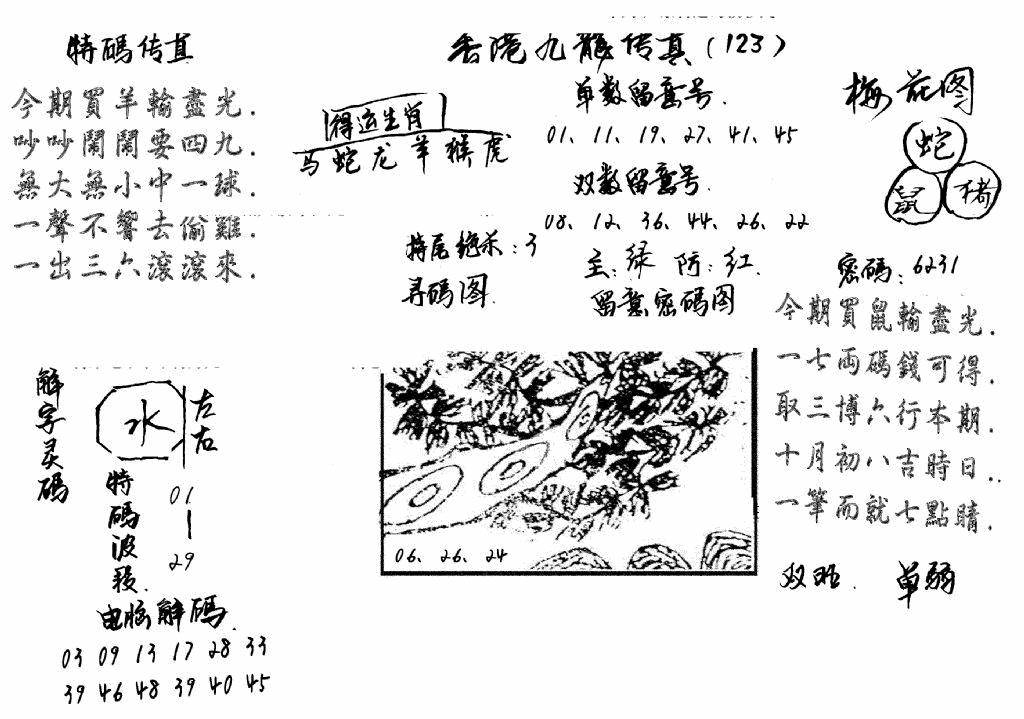 特碼传真
今期買羊輸盡光.
吵吵鬧鬧要四九.
無大無小中一球.
一聲不響去偷雞.
一出三六滾滾來.
香港九龍传真(123)
得运生肖
马蛇龙羊猴虎
单数留意号.
01、11、19、27、41、45
双数留意号
08、12、36、44、26、22
特尾绝杀:3
主:绿 防:红.
寻码图.
留意密码图
梅花图
蛇
鼠
猪
密碼:6231
今期買鼠輸盡光.
一七両碼錢可得.
取三博六行本期.
十月初八吉時日..
一筆而就七點睛.
双旺. 单弱
06、26、24
解字灵碼
水
左右
特碼波段.
01
29
电脑解碼.
03 09 13 17 28 33
39 46 48 39 40 45